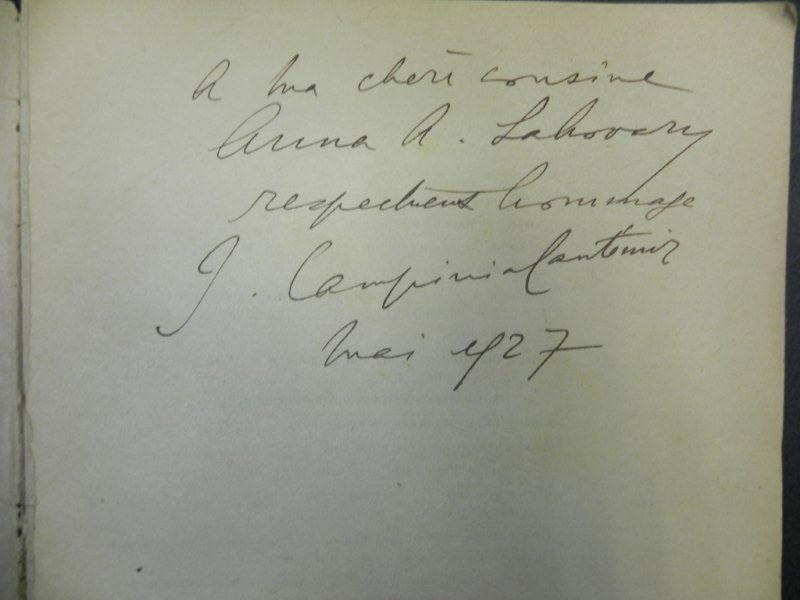 A ma cheri cousine
Anna A. Lahovary
respectueux hommage
I. Campinia Cantemir
Mai 1927